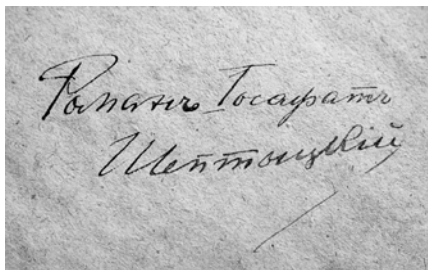 Романъ Іосафатъ
Шептицкій